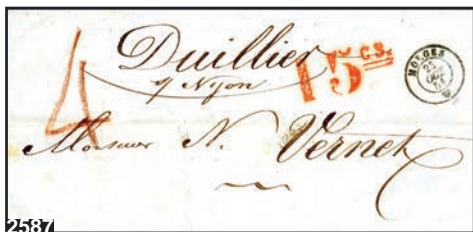 Duillier
s/ Nyon
4
15 CS.
MORGES
25
Monsieur N. Vernet
2587